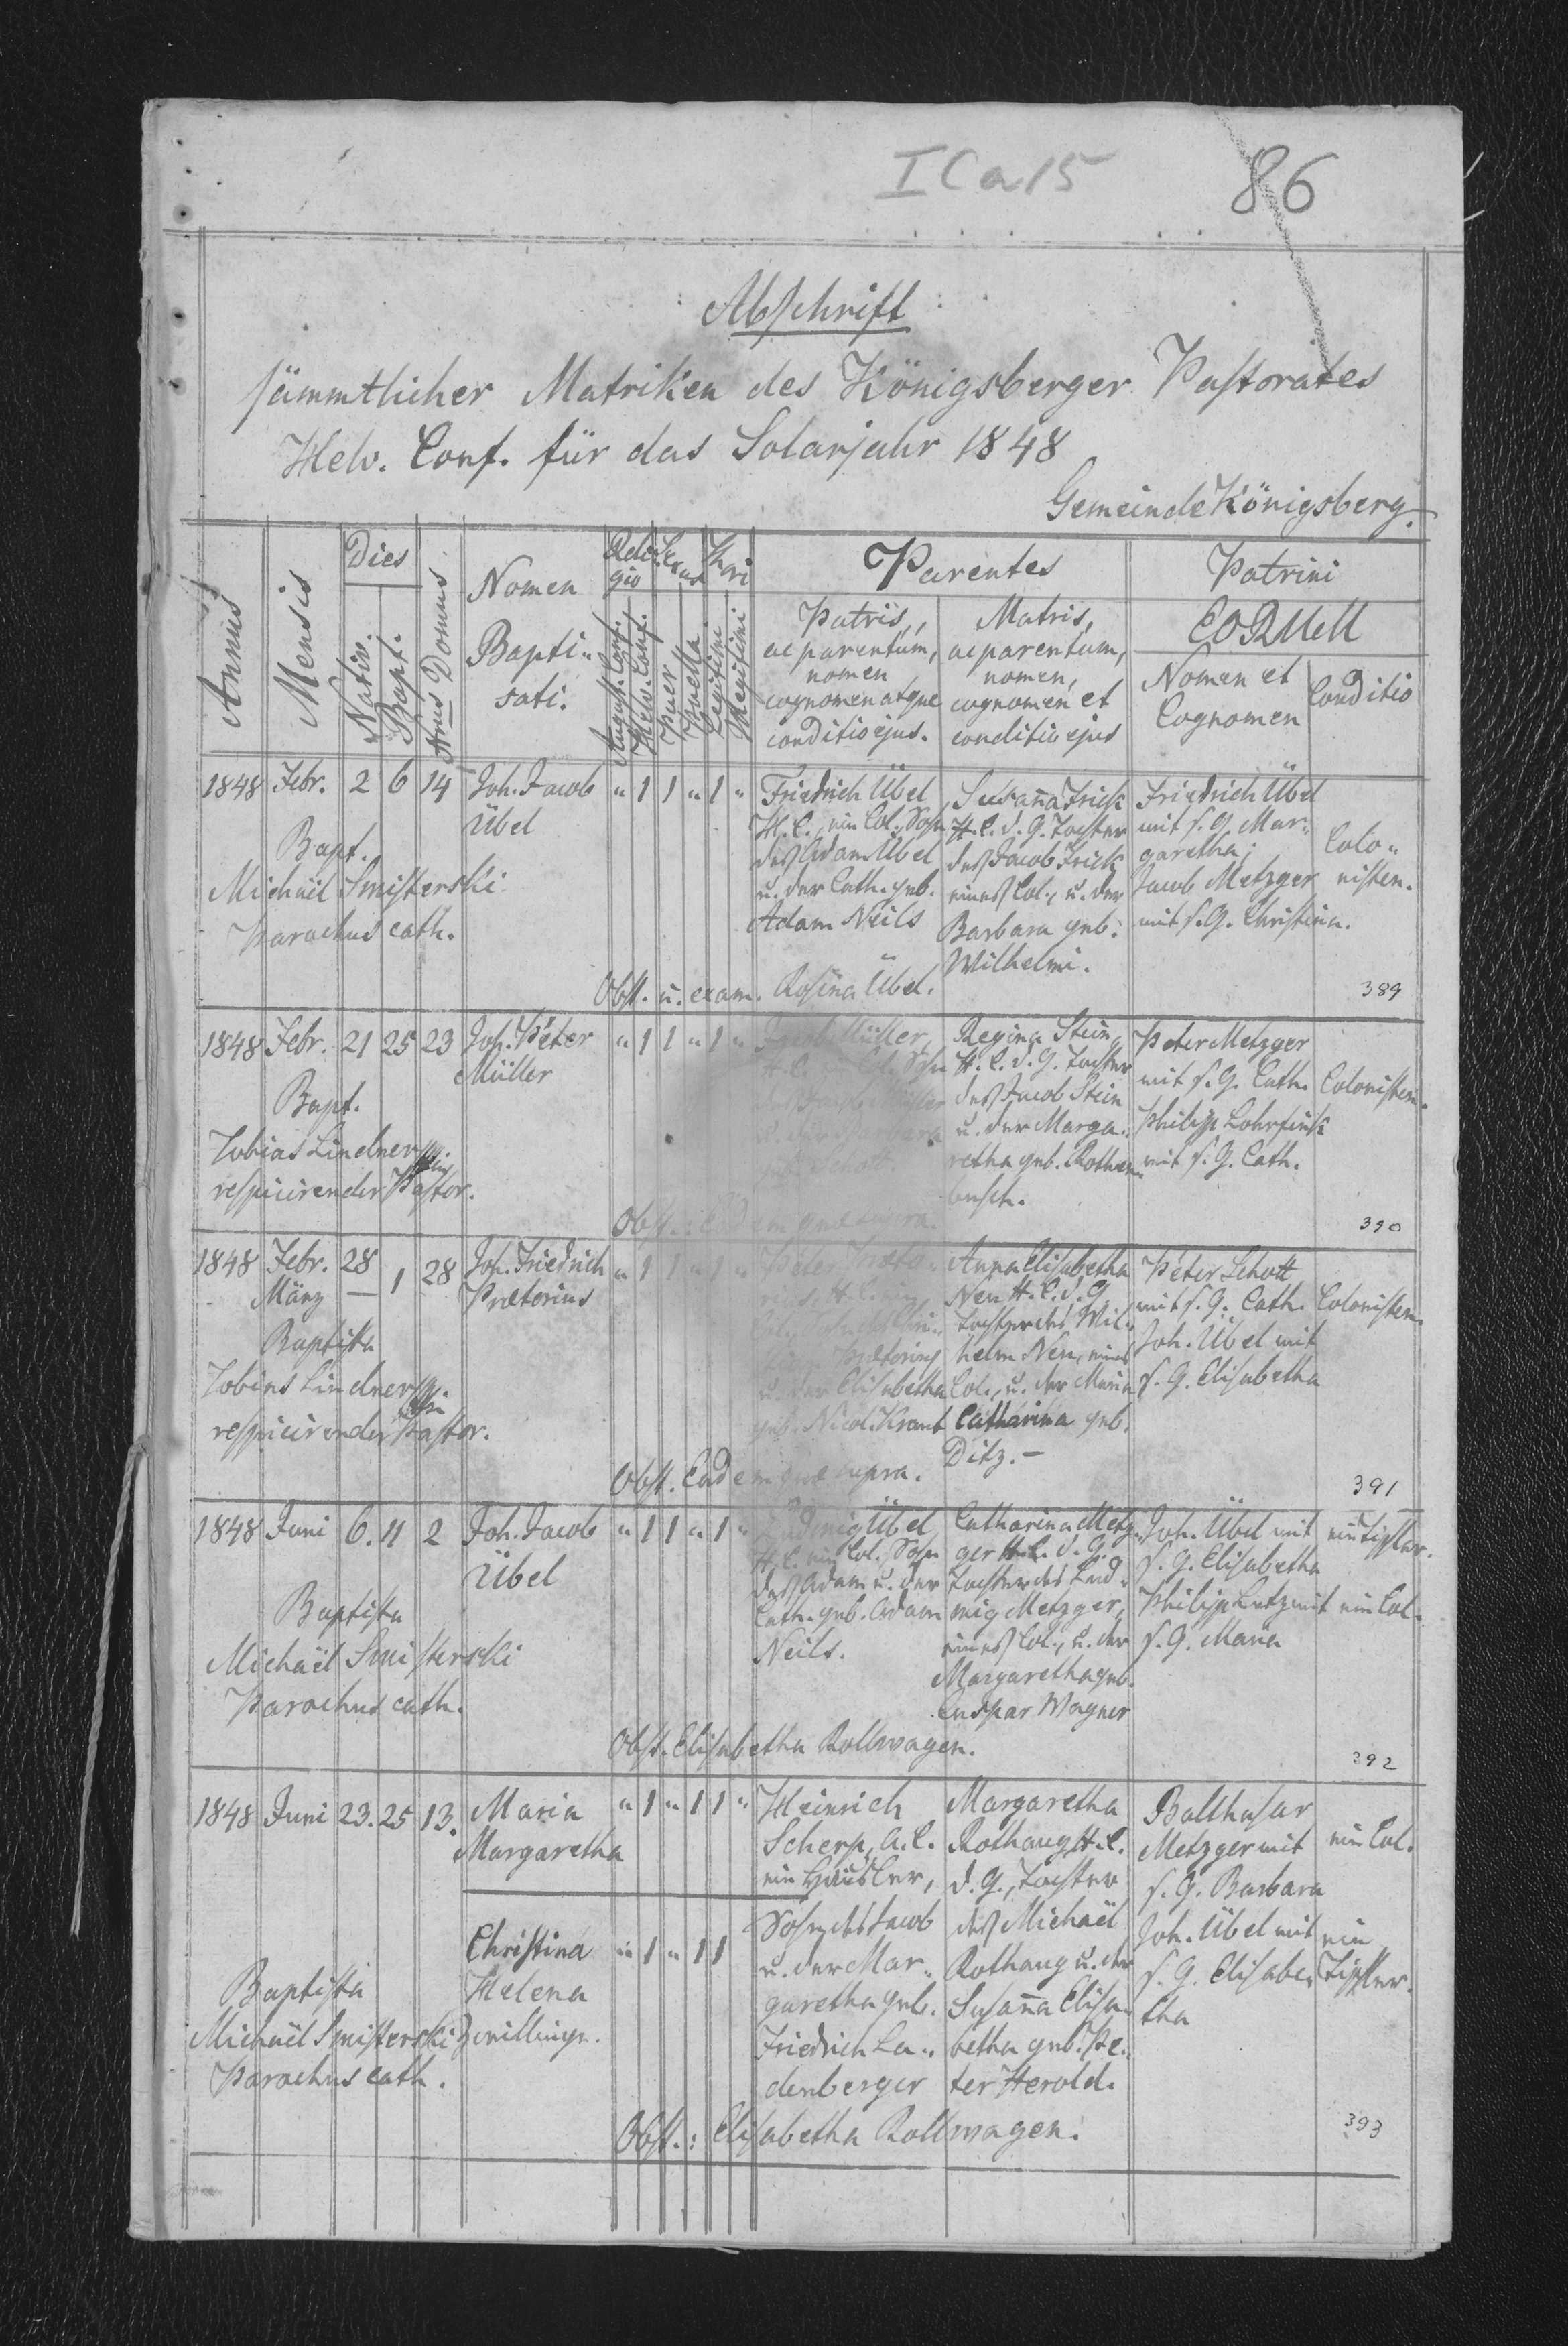 I C a 15
86
Abschrift
sämmtlicher Matriken des Königsberger Pastorates
Helv. Conf. für das Solarjahr 1848
Gemeinde Königsberg.
Annus
Mensis
Dies
Nativ.
Bapt.
Nrus Domus
Nomen
Bapti-
sati.
Reli-
gio
Sexus
Thori
August. Conf.
Helv. Conf.
Puer
Puella
Legitimi
Illegitimi
Parentes
Patris,
ac parentum,
nomen
cognomen atque
conditio ejus.
Matris,
ac parentum,
nomen,
cognomen et
conditio ejus
Patrini
EORUM
Nomen et
Cognomen
Conditio
1848 Febr. 2 6 14 Joh. Jacob " 1 1 " 1 "
Übel
Bapt.
Michaël Smisterski
Parochus cath.
Friedrich Übel
H. C., ein Col., Sohn
deß Adam Übel
u. der Cath. geb.
Adam Neils
Susanna Frick
H. C. d. G. Tochter
deß Jacob Frick
eines Col., u. der
Barbara geb.
Wilhelmi.
Friedrich Übel
mit s. G. Mar-
garetha;
Jacob Metzger
mit s. G. Christina.
Colo-
nisten.
Obst. u. exam. Rosina Übel.
389
1848 Febr. 21 25 23 Joh. Peter " 1 1 " 1 "
Müller
Bapt.
Tobias Lindner
respicirender Pastor.
Jacob Müller,
H. C. ein Col. Sohn
deß Jacob Müller
u. der Barbara
geb. Schott.
Regina Stein,
H. C. d. G. Tochter
deß Jacob Stein
u. der Marga-
retha geb. Rothen-
busch.
Peter Metzger
mit s. G. Cath.
Philipp Lohrfink
mit s. G. Cath.
Colonisten.
Obst.: Eadem quae supra.
390
1848 Febr. 28 1 28 Joh. Friedrich " 1 1 " 1 "
März — Prætorius
Baptista
Tobias Lindner
respicirender Pastor.
Peter Præto-
rius, H. C. ein
Prætorius
u. der Elisabetha
geb. Nicol. Kraut
Anna Elisabetha
Neu H. C. d. G.
Tochter des Wil-
helm Neu, eines
Col., u. der Maria
Catharina geb.
Ditz. —
Peter Schott
mit s. G. Cath.
Joh. Übel mit
s. G. Elisabetha
Colonisten.
Obst. Eadem quae supra.
391
1848 Juni 6. 11 2 Joh. Jacob " 1 1 " 1 "
Übel
Baptista
Michaël Smisterski
Parochus cath.
Ludwig Übel
H. C. ein Col. Sohn
deß Adam u. der
Cath. geb. Adam
Neils.
Catharina Metz-
ger H. C. d. G.
Tochter des Lud-
wig Metzger,
eines Col., u. der
Margaretha geb.
Caspar Wagner
Joh. Übel mit
s. G. Elisabetha
Philipp Lutz mit
s. G. Maria
ein Tischler.
ein Col.
Obst. Elisabetha Rollwagen.
392
1848 Juni 23. 25 13. Maria " 1 " 1 1 "
Margaretha
Christina " 1 " 1 1
Helena
Zwillinge.
Baptista
Michaël Smisterski
Parochus cath.
Heinrich
Scherp, A. C.
ein Häusler,
Sohn des Jacob
u. der Mar-
garetha geb.
Friedrich La-
denberger
Margaretha
Rothaug, H. C.
d. G., Tochter
deß Michaël
Rothaug u. der
Susanna Elisa-
betha geb. Pe-
ter Herold.
Balthasar
Metzger mit
s. G. Barbara
Joh. Übel mit
s. G. Elisabe-
tha
ein Col.
ein
Tischler.
Obst.: Elisabetha Rollwagen.
393